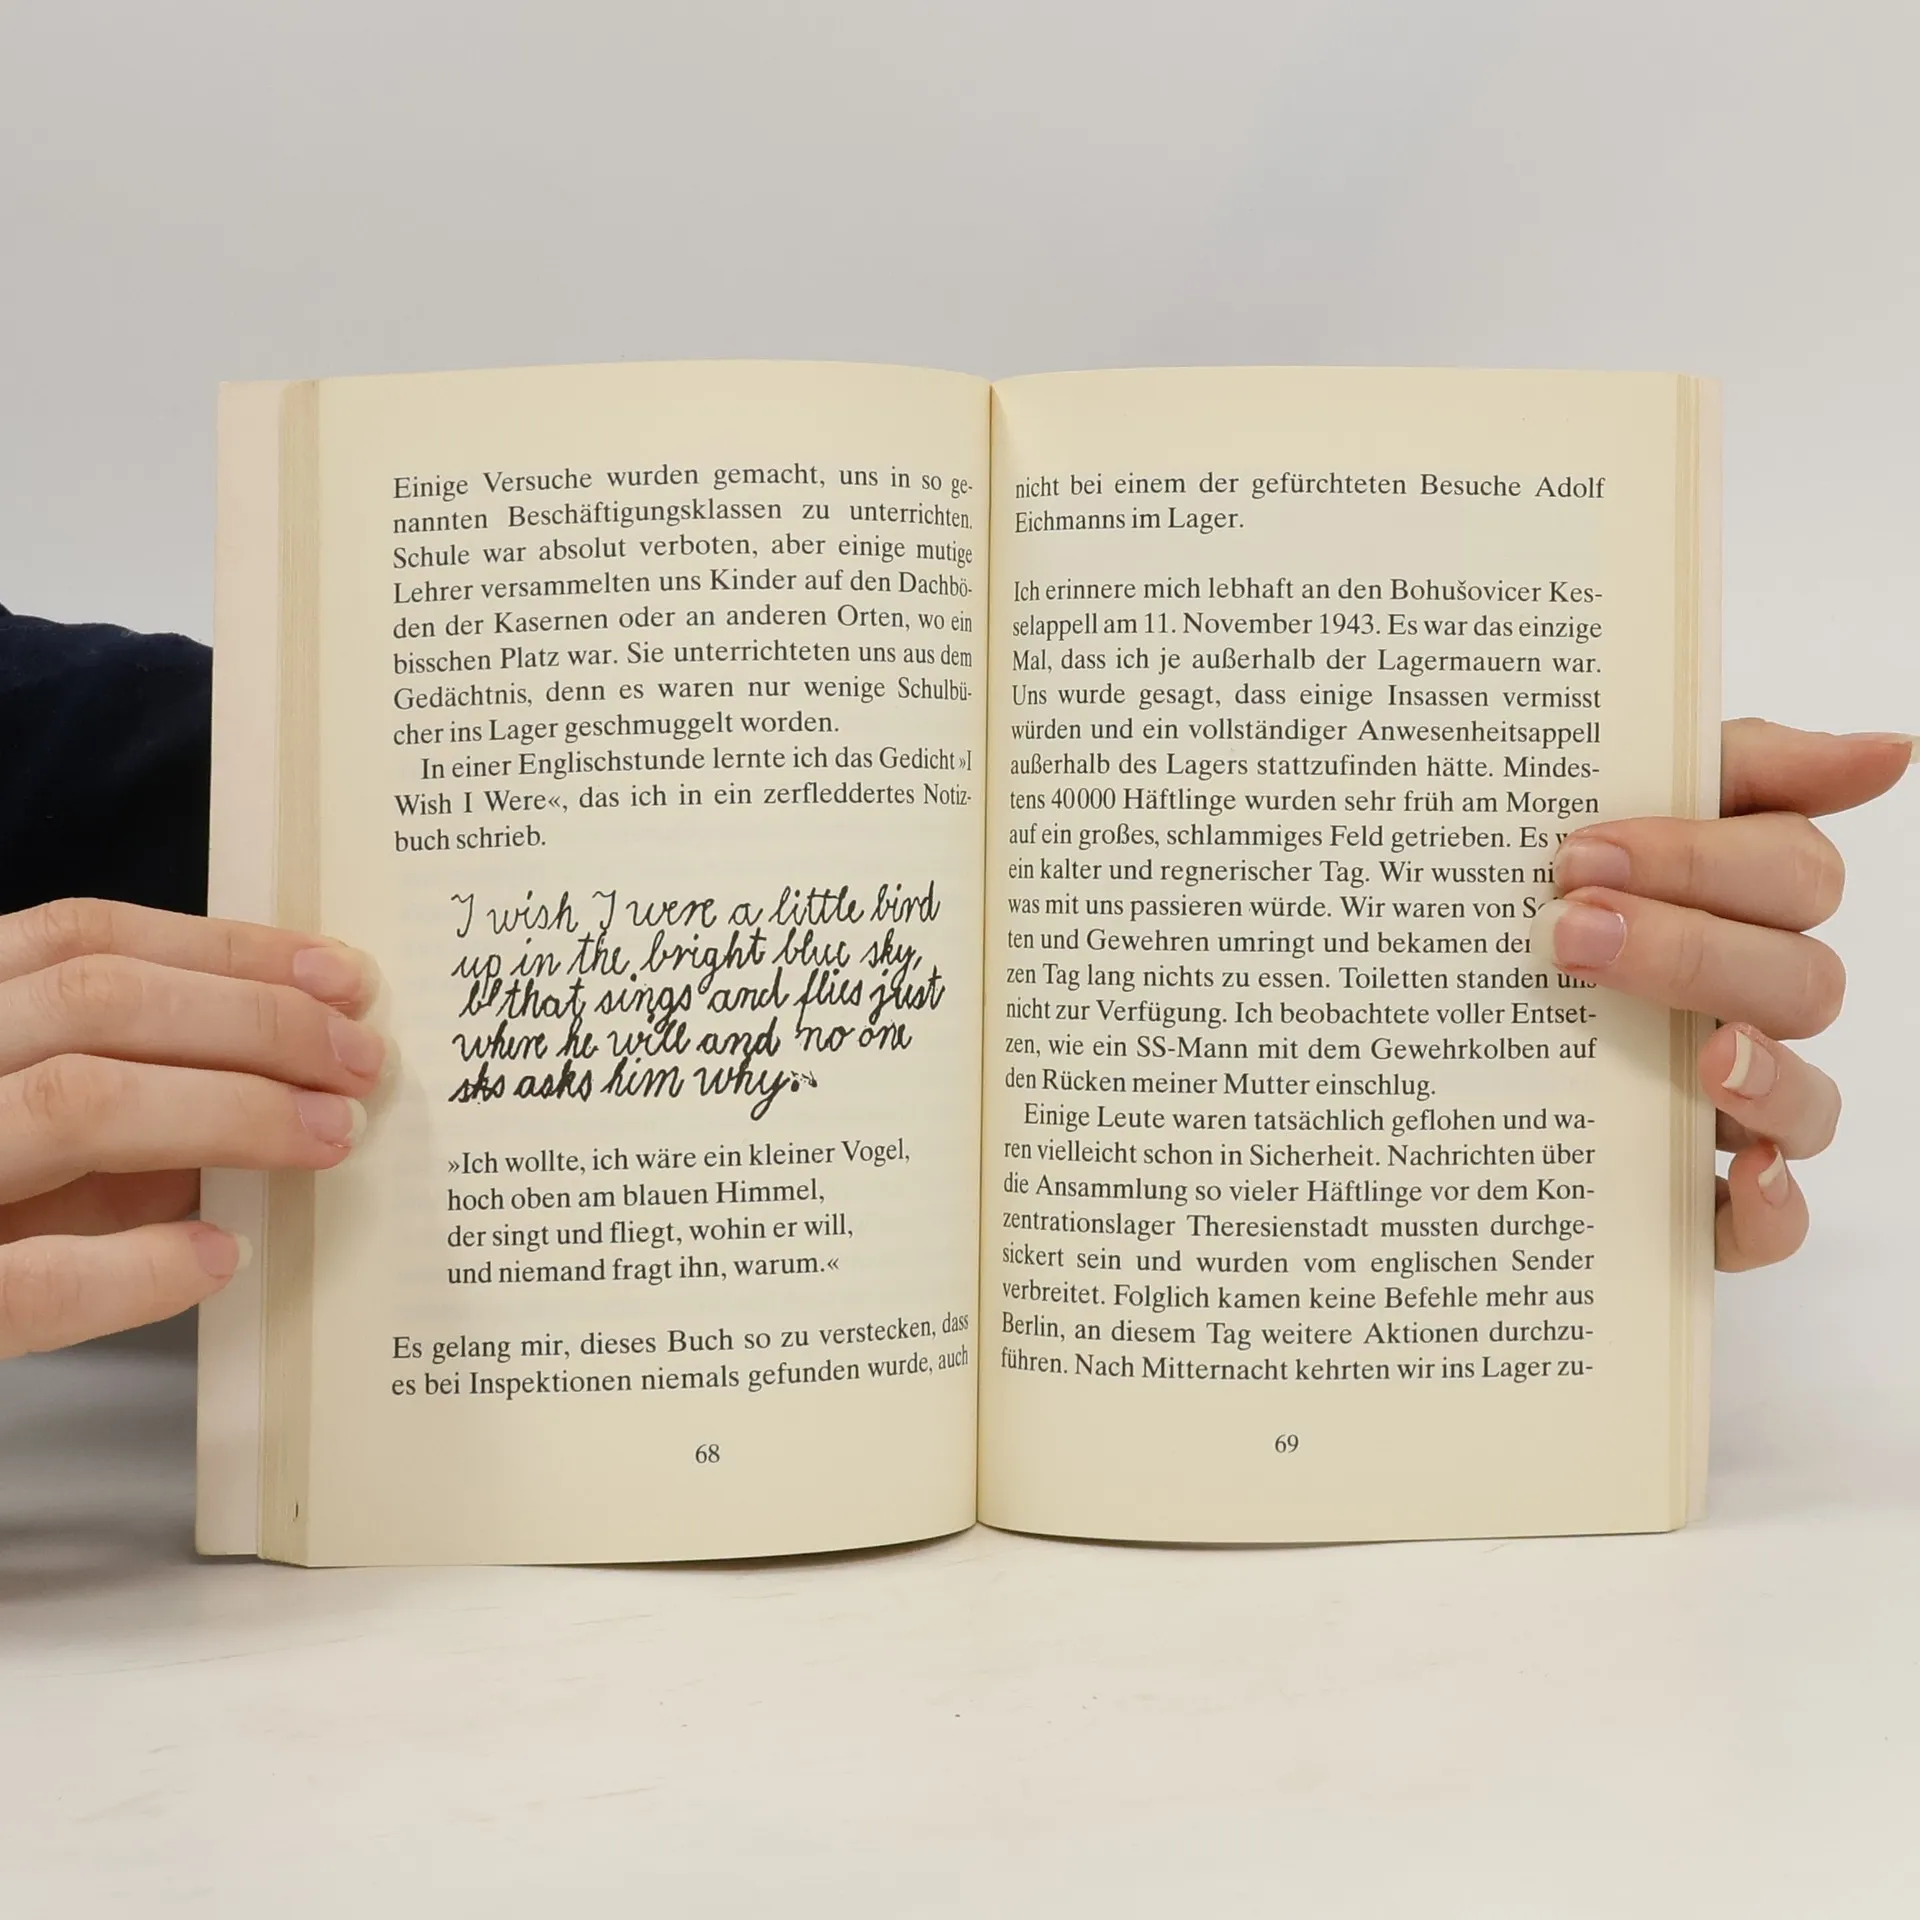 Einige Versuche wurden gemacht, uns in so ge-
nannten Beschäftigungsklassen zu unterrichten.
Schule war absolut verboten, aber einige mutige
Lehrer versammelten uns Kinder auf den Dachbö-
den der Kasernen oder an anderen Orten, wo ein
bisschen Platz war. Sie unterrichteten uns aus dem
Gedächtnis, denn es waren nur wenige Schulbü-
cher ins Lager geschmuggelt worden.
In einer Englischstunde lernte ich das Gedicht »I
Wish I Were«, das ich in ein zerfleddertes Notiz-
buch schrieb.
I wish I were a little bird
up in the bright blue sky,
that sings and flies just
where he will and no one
asks him why.
»Ich wollte, ich wäre ein kleiner Vogel,
hoch oben am blauen Himmel,
der singt und fliegt, wohin er will,
und niemand fragt ihn, warum.«
Es gelang mir, dieses Buch so zu verstecken, dass
es bei Inspektionen niemals gefunden wurde, auch
68
nicht bei einem der gefürchteten Besuche Adolf
Eichmanns im Lager.
Ich erinnere mich lebhaft an den Bohušovicer Kes-
selappell am 11. November 1943. Es war das einzige
Mal, dass ich je außerhalb der Lagermauern war.
Uns wurde gesagt, dass einige Insassen vermisst
würden und ein vollständiger Anwesenheitsappell
außerhalb des Lagers stattzufinden hätte. Mindes-
tens 40000 Häftlinge wurden sehr früh am Morgen
auf ein großes, schlammiges Feld getrieben. Es
ein kalter und regnerischer Tag. Wir wussten
was mit uns passieren würde. Wir waren von
ten und Gewehren umringt und bekamen
zen Tag lang nichts zu essen. Toiletten standen uns
nicht zur Verfügung. Ich beobachtete voller Entset-
zen, wie ein SS-Mann mit dem Gewehrkolben auf
den Rücken meiner Mutter einschlug.
Einige Leute waren tatsächlich geflohen und wa-
ren vielleicht schon in Sicherheit. Nachrichten über
die Ansammlung so vieler Häftlinge vor dem Kon-
zentrationslager Theresienstadt mussten durchge-
sickert sein und wurden vom englischen Sender
verbreitet. Folglich kamen keine Befehle mehr aus
Berlin, an diesem Tag weitere Aktionen durchzu-
führen. Nach Mitternacht kehrten wir ins Lager zu-
69